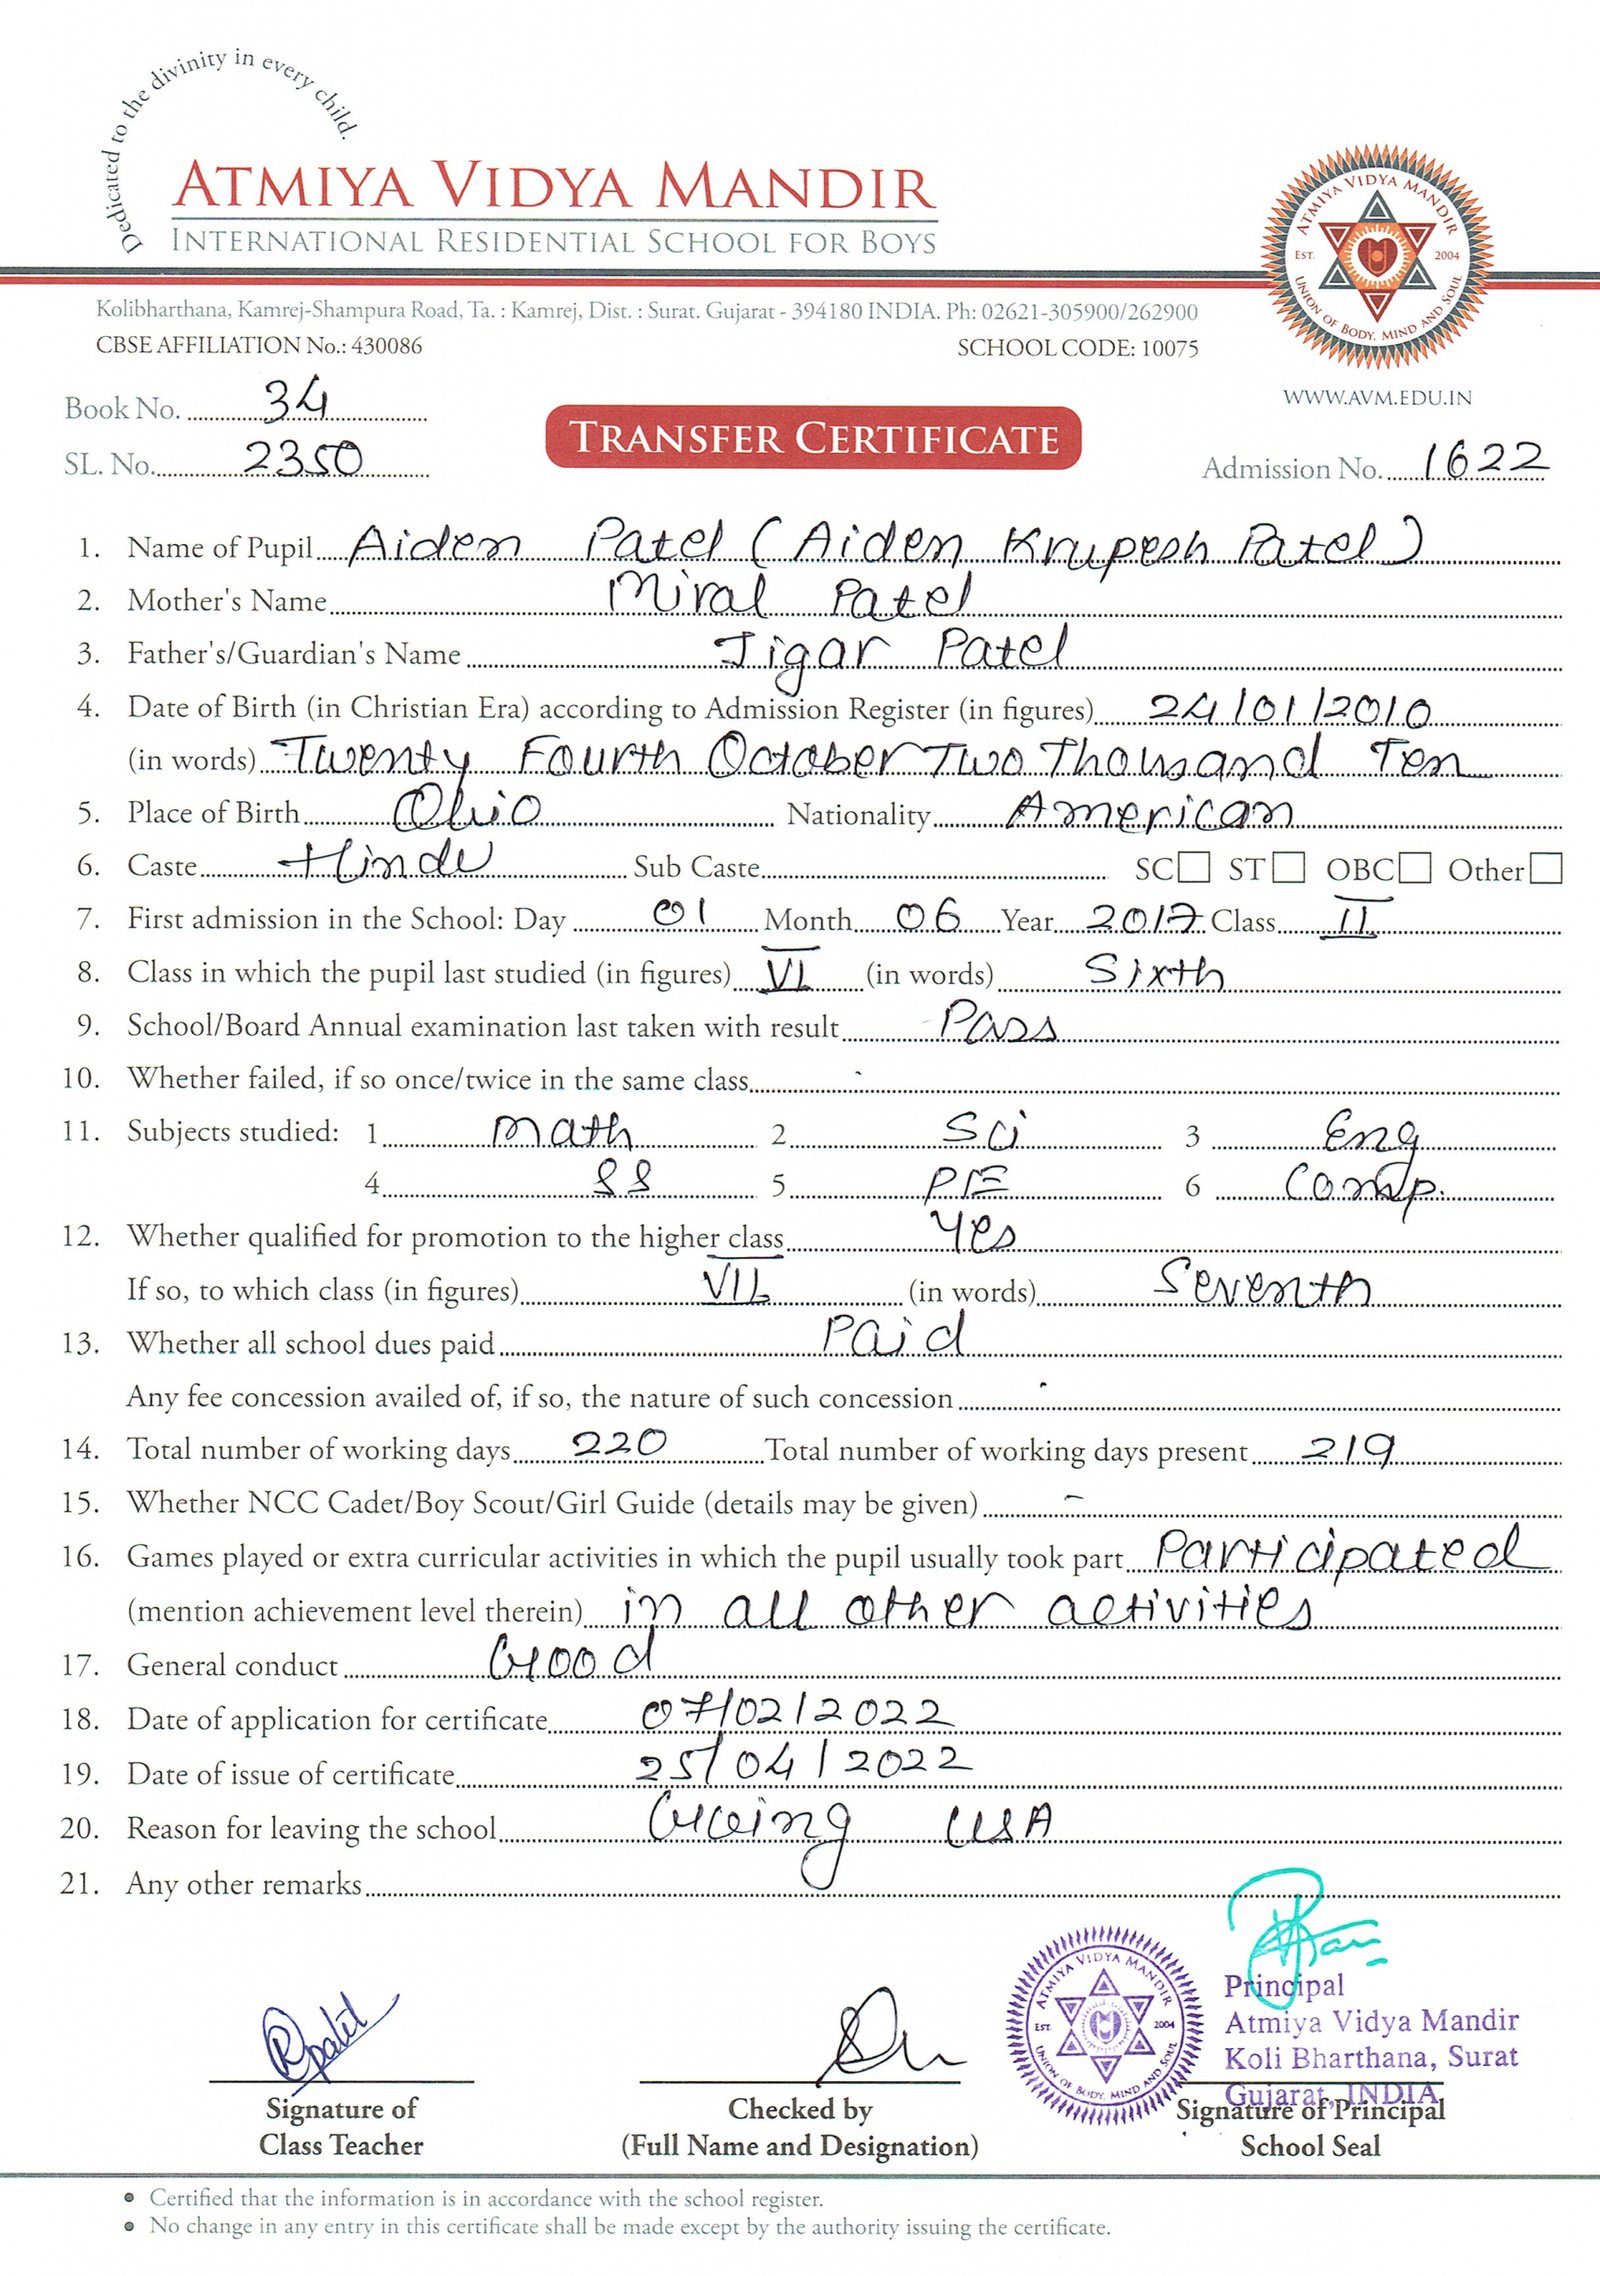 Dedicated to the divinity in every child.
ATMIYA VIDYA MANDIR
INTERNATIONAL RESIDENTIAL SCHOOL FOR BOYS
ATMIYA VIDYA MANDIR
EST. 2004
UNION OF BODY, MIND AND SOUL
Kolibharthana, Kamrej-Shampura Road, Ta. : Kamrej, Dist. : Surat. Gujarat - 394180 INDIA. Ph: 02621-305900/262900
CBSE AFFILIATION No.: 430086 SCHOOL CODE: 10075
WWW.AVM.EDU.IN
Book No. 34
TRANSFER CERTIFICATE
SL. No. 2350 Admission No. 1622
1. Name of Pupil Aiden Patel (Aiden Krupesh Patel)
2. Mother's Name Miral Patel
3. Father's/Guardian's Name Jigar Patel
4. Date of Birth (in Christian Era) according to Admission Register (in figures) 24/01/2010
(in words) Twenty Fourth October Two Thousand Ten
5. Place of Birth Ohio Nationality American
6. Caste Hindu Sub Caste SC ST OBC Other
7. First admission in the School: Day 01 Month 06 Year 2017 Class II
8. Class in which the pupil last studied (in figures) VI (in words) Sixth
9. School/Board Annual examination last taken with result Pass
10. Whether failed, if so once/twice in the same class -
11. Subjects studied: 1 Math 2 Sci 3 Eng
4 SS 5 PE 6 Comp.
12. Whether qualified for promotion to the higher class Yes
If so, to which class (in figures) VII (in words) Seventh
13. Whether all school dues paid Paid
Any fee concession availed of, if so, the nature of such concession -
14. Total number of working days 220 Total number of working days present 219
15. Whether NCC Cadet/Boy Scout/Girl Guide (details may be given) -
16. Games played or extra curricular activities in which the pupil usually took part Participated
(mention achievement level therein) in all other activities
17. General conduct Good
18. Date of application for certificate 07/02/2022
19. Date of issue of certificate 25/04/2022
20. Reason for leaving the school Going USA
21. Any other remarks
ATMIYA VIDYA MANDIR
EST. 2004
UNION OF BODY, MIND AND SOUL
Principal
Atmiya Vidya Mandir
Koli Bharthana, Surat
Gujarat, INDIA
Rpatel
Signature of Checked by Signature of Principal
Class Teacher (Full Name and Designation) School Seal
• Certified that the information is in accordance with the school register.
• No change in any entry in this certificate shall be made except by the authority issuing the certificate.